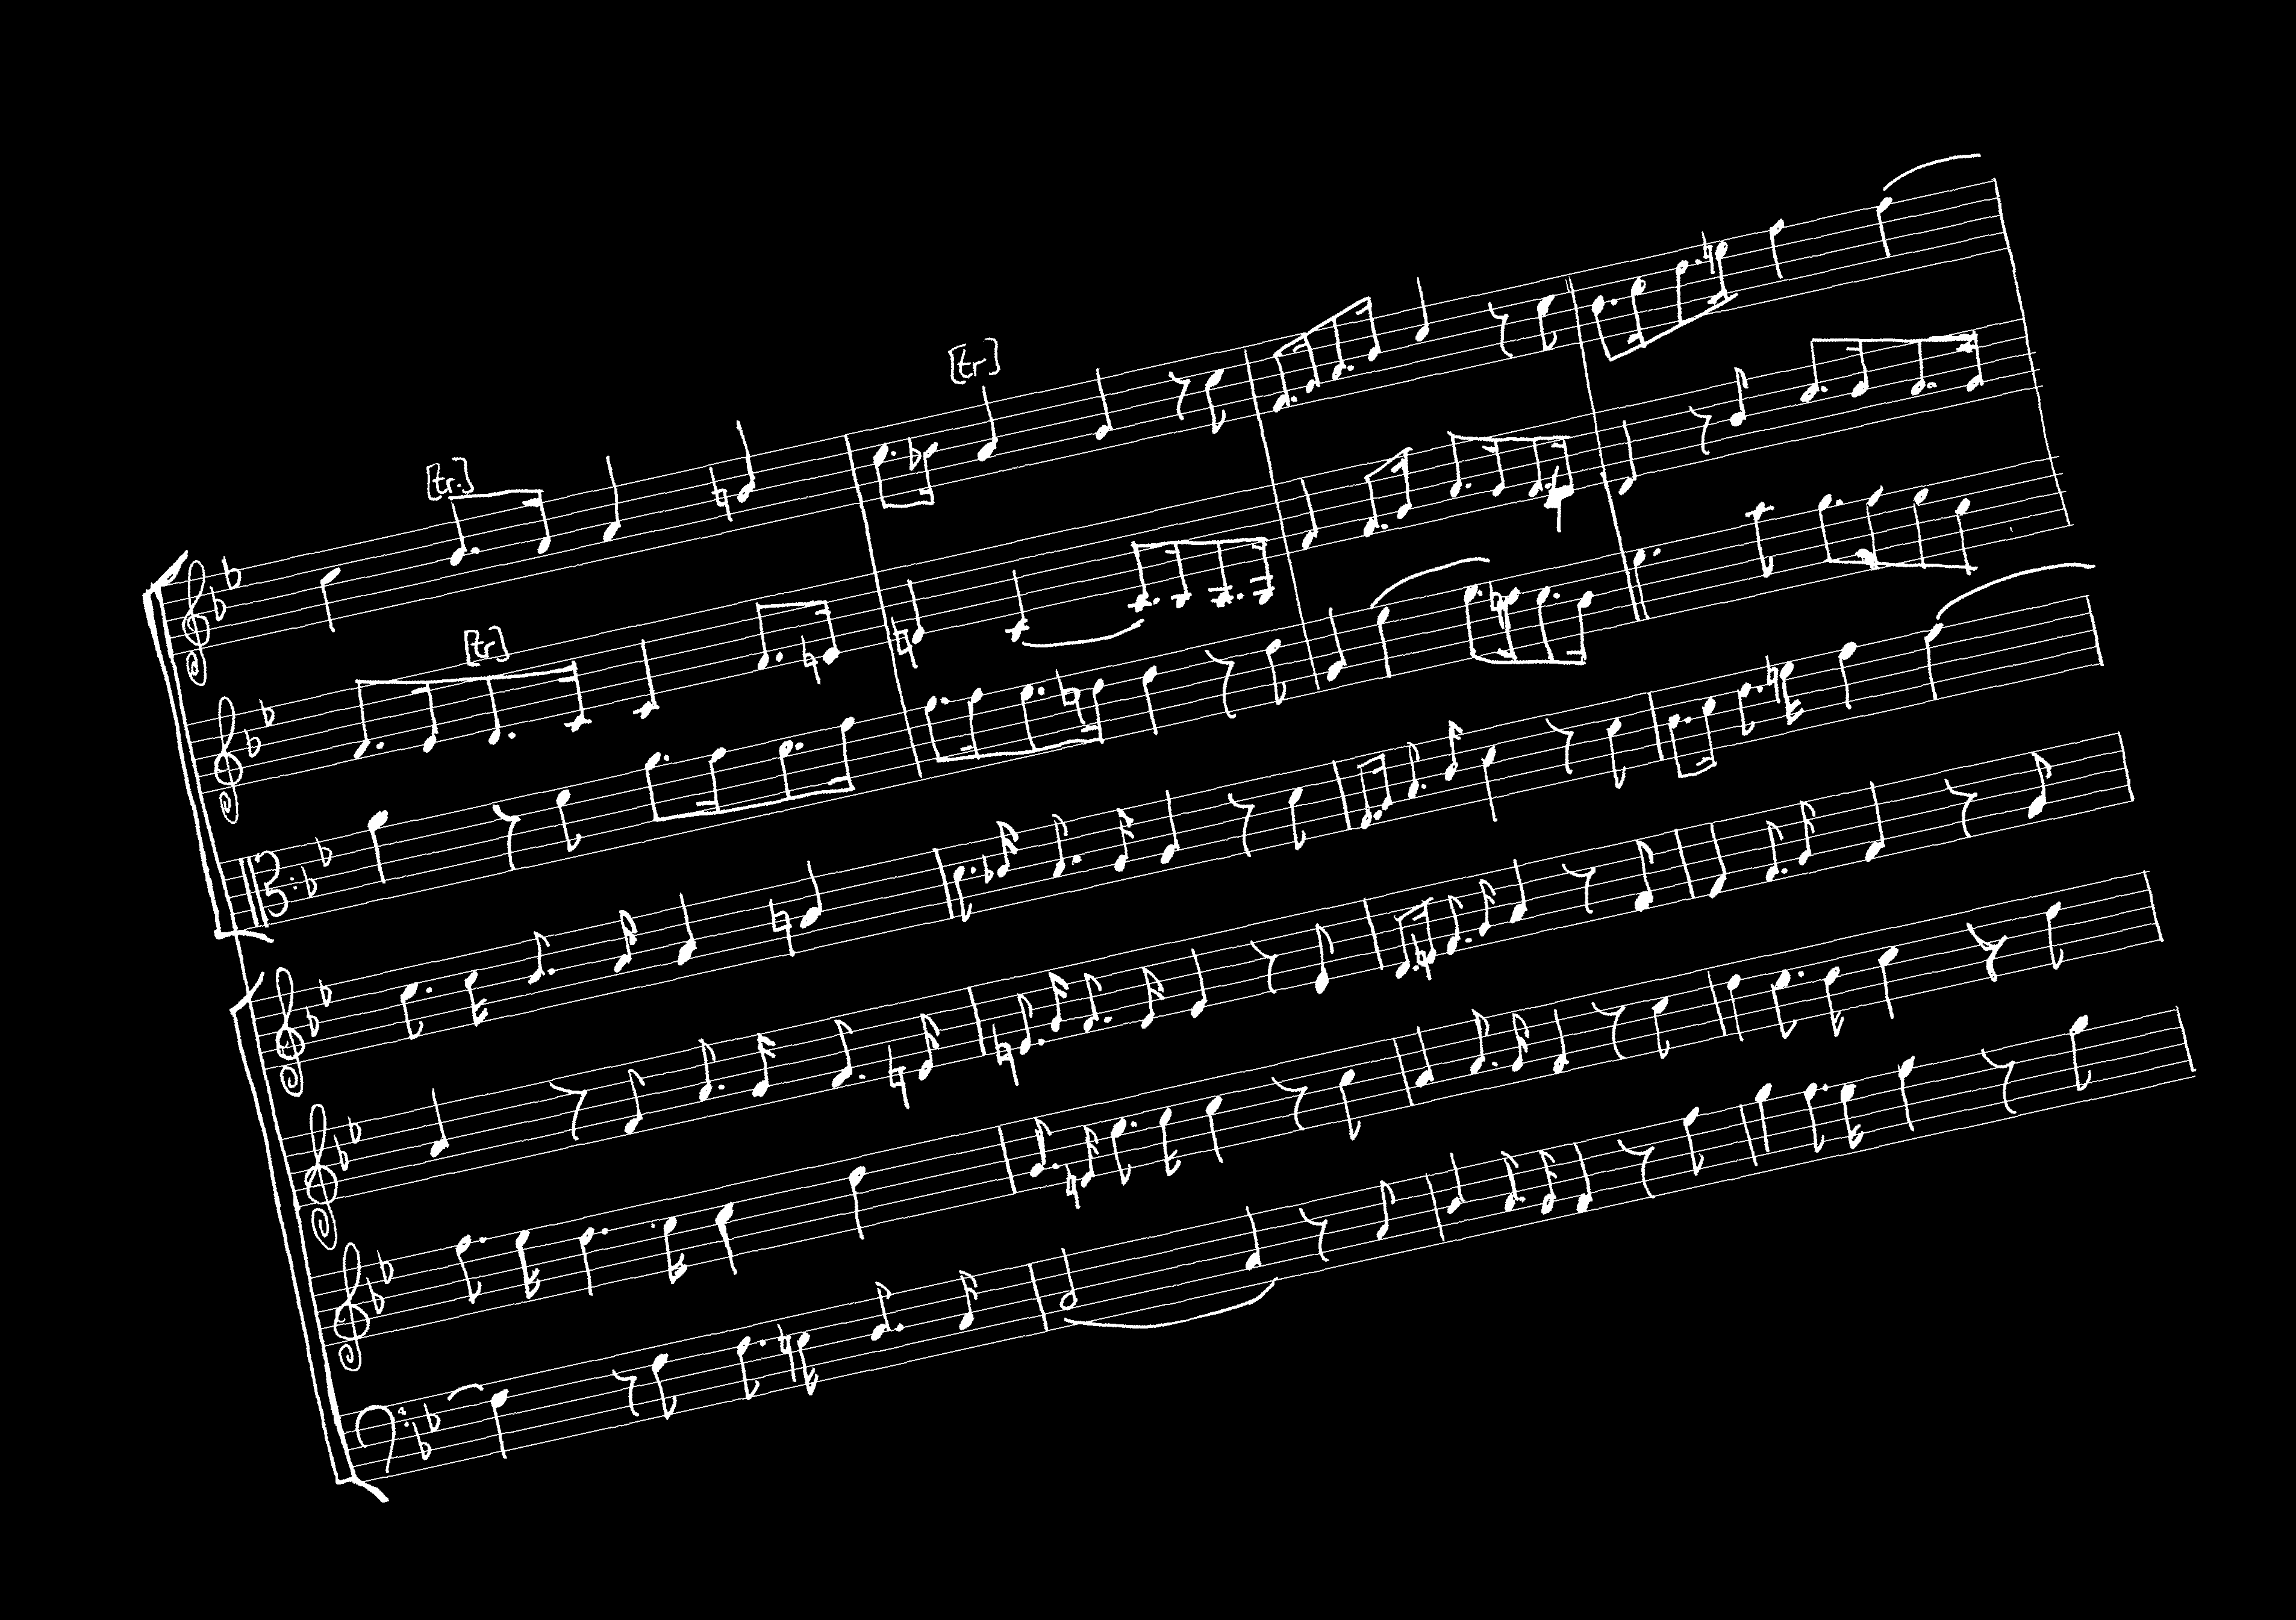 [tr.]
[tr]
[tr]